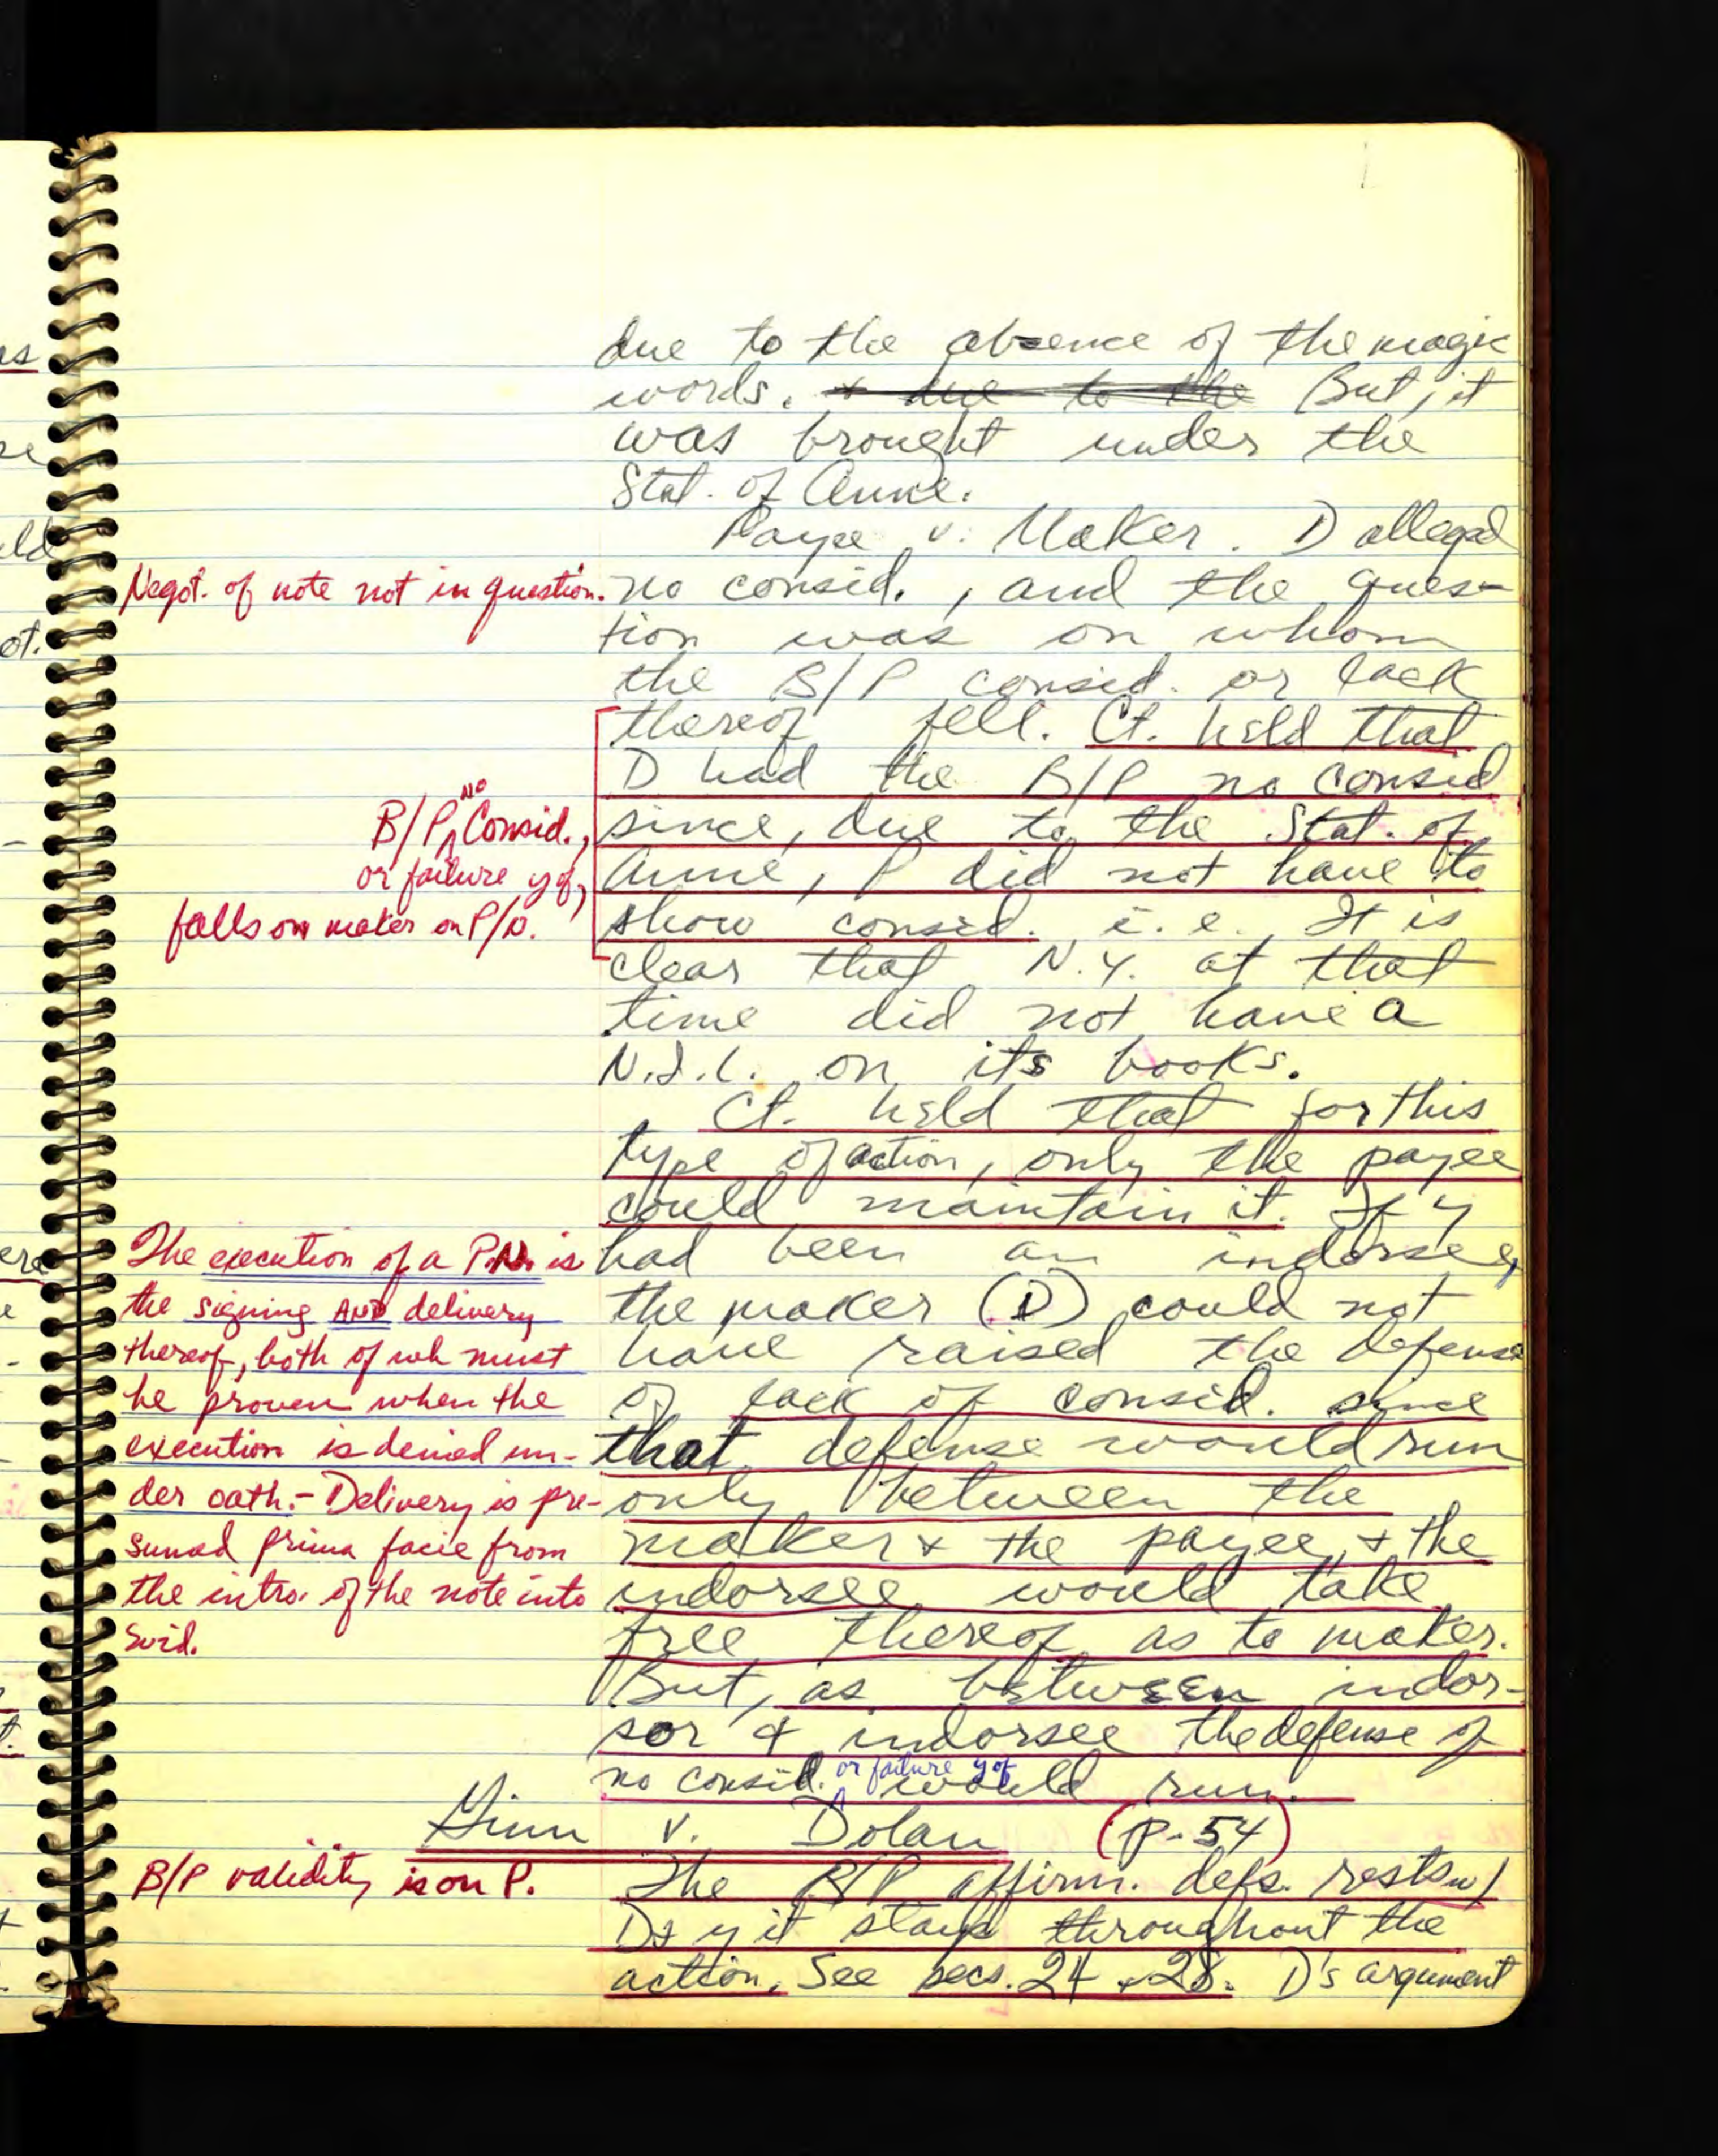 due to the absence of the magic
words. + due to the But, it
was brought under the
Stat. of Anne.
Payee v. Maker. D alleged
Negot. of note not in question.
no consid., and the ques-
tion was on whom
the B/P consid. or lack
thereof fell. Ct. held that
D had the B/P no consid
since, due to the Stat. of
Anne, P did not have to
show consid. i.e., It is
B/P no Consid.,
or failure yof,
falls on maker on P/N.
clear that N.Y. at that
time did not have a
N.I.L. on its books.
Ct. held that for this
type of action, only the payee
could maintain it. If y
had been an indorsee,
the maker (D) could not
have raised the defense
of lack of consid. since
that defense would run
only between the
maker + the payee, + the
indorsee would take
free thereof as to maker.
But, as between indor-
sor & indorsee the defense of
no consid. or failure yof would run.
The execution of a P.N. is
the signing AND delivery
thereof, both of wh must
be proven when the
execution is denied un-
der oath. - Delivery is pre-
sumed prima facie from
the intro. of the note into
evid.
Ginn v. Dolan (p-54)
B/P validity is on P.
The B/P affirm. defs. rests w/
D & y it stays throughout the
action. See secs. 24 + 28. D's argument
as
ld
ot.